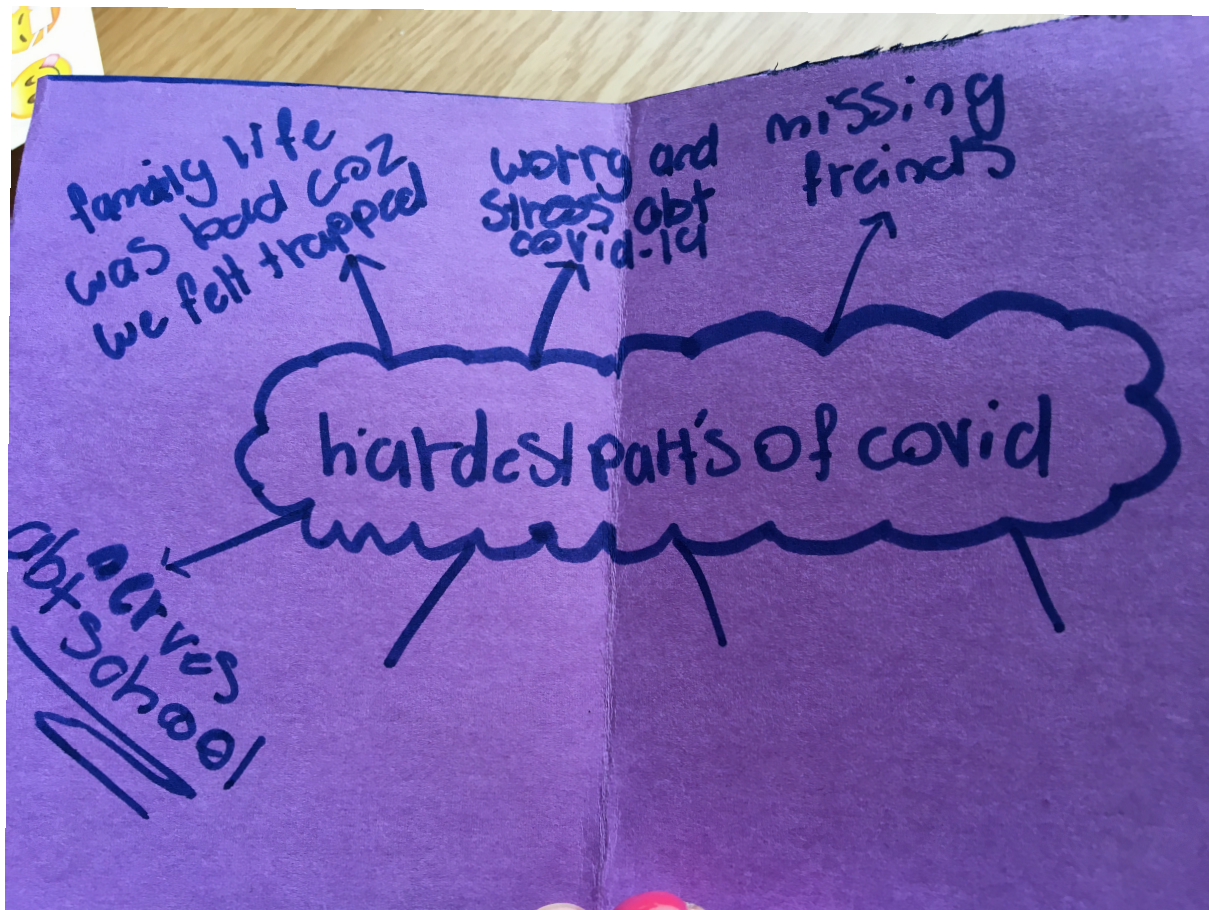 family life
was bad coz
we felt trapped
worry and
stress abt
covid-19
missing
freinds
hardest part's of covid
nerves
abt
school